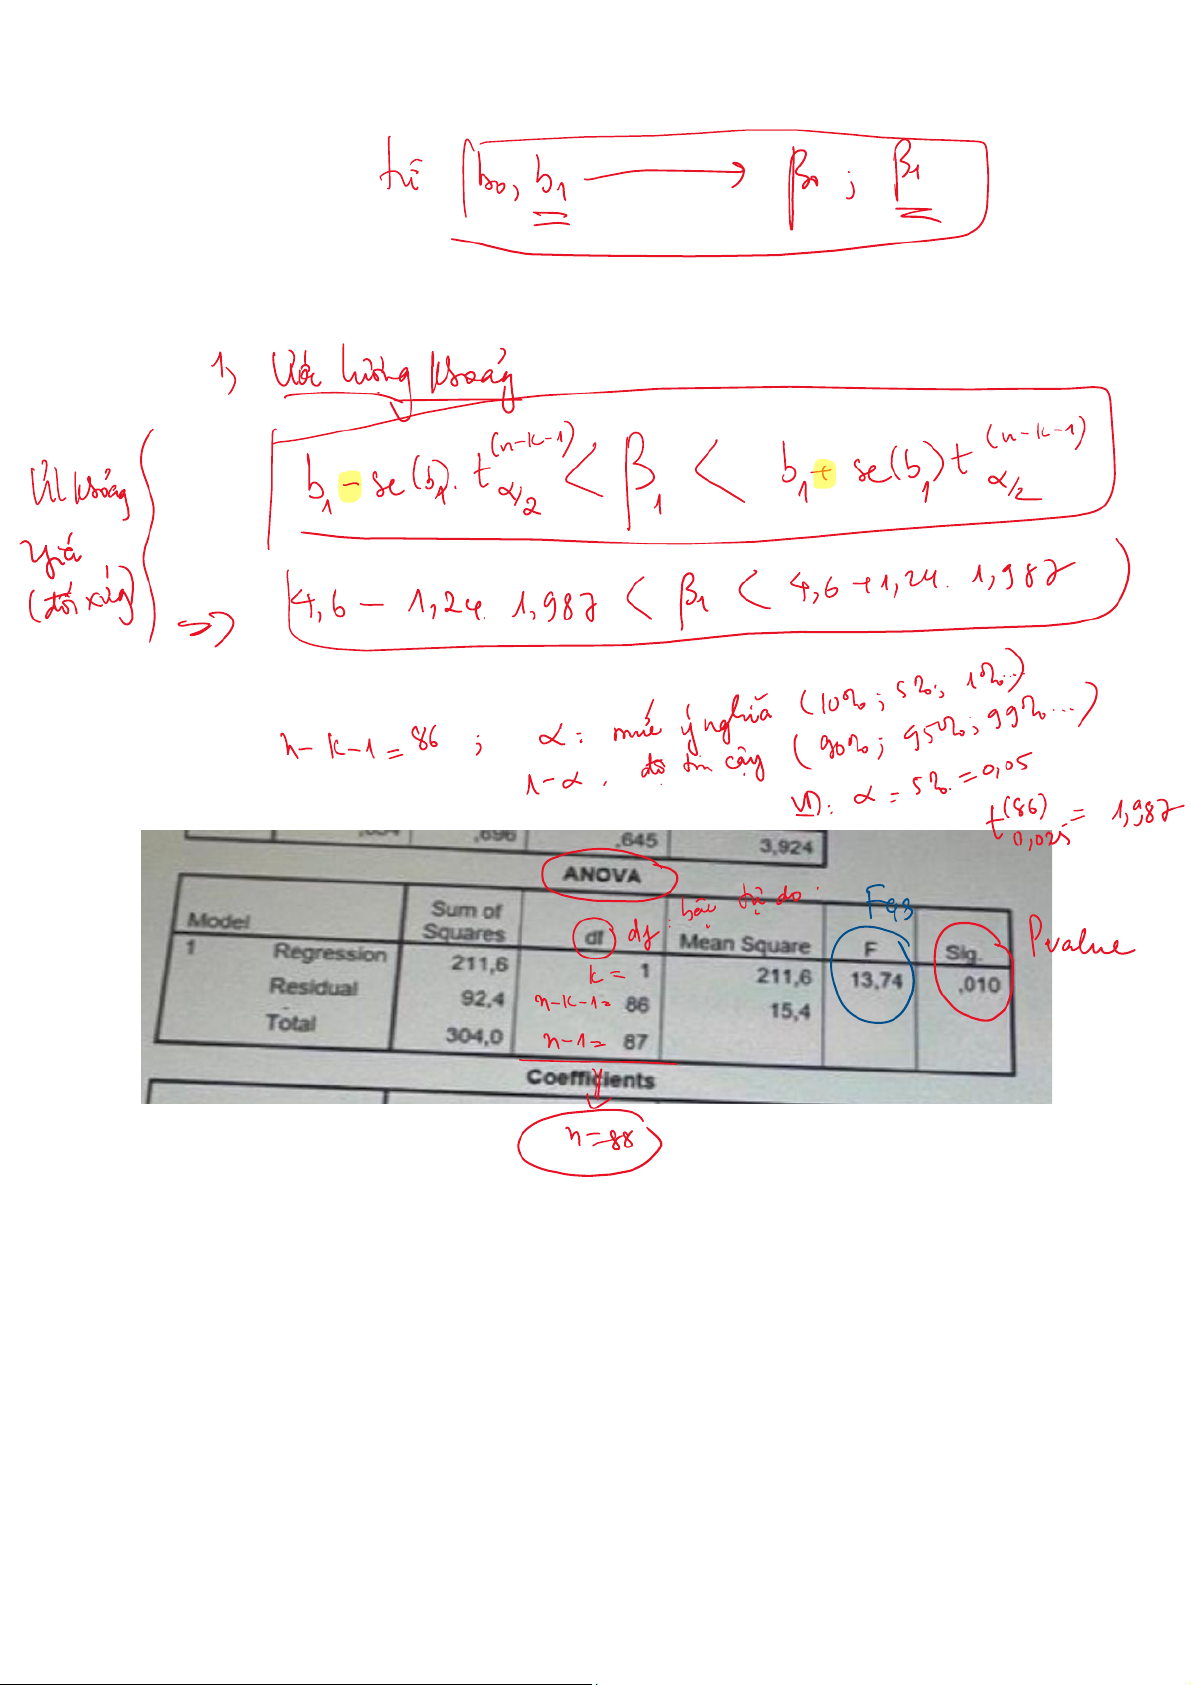 từ b₀, b₁ → β₀ ; β₁
1) Ước lượng khoảng
b₁ - se(b₁). t_{α/2}^{(n-k-1)} < β₁ < b₁ + se(b₁) t_{α/2}^{(n-k-1)}
ƯL khoảng
(đối xứng)
=> 4,6 - 1,24. 1,987 < β₁ < 4,6 + 1,24. 1,987
n-k-1 = 86 ; α: mức ý nghĩa (10%; 5%; 1%...)
1-α. độ tin cậy (90%; 95%; 99%...)
VD: α = 5% = 0,05
t_{0,025}^{(86)} = 1,987
,696 ,645 3,924
ANOVA
bậc tự do
Fqs
Model Sum of Squares df df Mean Square F Sig. Pvalue
1 Regression 211,6 k = 1 211,6 13,74 ,010
Residual 92,4 n-k-1= 86 15,4
Total 304,0 n-1= 87
Coefficients
n=88